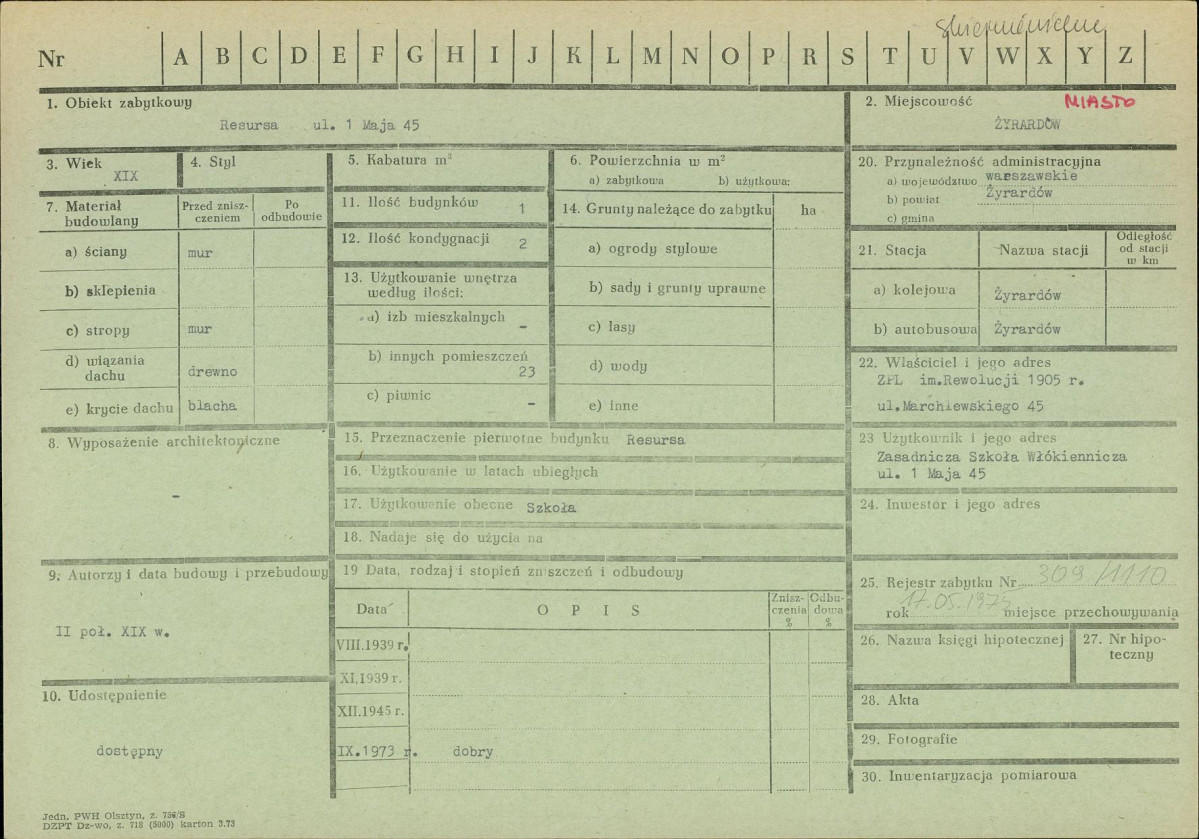 Skierniewickie
Nr A B C D E F G H I J K L M N O P R S T U V W X Y Z
1. Obiekt zabytkowy
Resursa ul. 1 Maja 45
2. Miejscowość MIASTO
ŻYRARDÓW
3. Wiek
XIX
4. Styl
5. Kabatura m³
6. Powierzchnia w m²
a) zabytkowa b) użytkowa:
20. Przynależność administracyjna
a) województwo warszawskie
b) powiat Żyrardów
c) gmina
7. Materiał budowlany
Przed znisz-
czeniem
Po
odbudowie
11. Ilość budynków 1
14. Grunty należące do zabytku ha
a) ściany mur
12. Ilość kondygnacji 2
a) ogrody stylowe
21. Stacja Nazwa stacji
Odległość
od stacji
w km
b) sklepienia
13. Użytkowanie wnętrza
według ilości:
b) sady i grunty uprawne
a) kolejowa Żyrardów
c) stropy mur
a) izb mieszkalnych -
c) lasy
b) autobusowa Żyrardów
d) wiązania
dachu drewno
b) innych pomieszczeń
23
d) wody
22. Właściciel i jego adres
ZPL im.Rewolucji 1905 r.
ul.Marchlewskiego 45
e) krycie dachu blacha
c) piwnic -
e) inne
8. Wyposażenie architektoniczne
-
15. Przeznaczenie pierwotne budynku Resursa
23 Użytkownik i jego adres
Zasadnicza Szkoła Włókiennicza
ul. 1 Maja 45
16. Użytkowanie w latach ubiegłych
17. Użytkowanie obecne Szkoła
24. Inwestor i jego adres
18. Nadaje się do użycia na
9. Autorzy i data budowy i przebudowy
II poł. XIX w.
19 Data, rodzaj i stopień zniszczeń i odbudowy
Data OPIS
Znisz-
czenia
%
Odbu-
dowa
%
25. Rejestr zabytku Nr 309/1110
rok 17.05.1975 miejsce przechowywania
VIII.1939 r.
26. Nazwa księgi hipotecznej
27. Nr hipo-
teczny
XI.1939 r.
10. Udostępnienie
dostępny
28. Akta
XII.1945 r.
29. Fotografie
IX.1973 r. dobry
30. Inwentaryzacja pomiarowa
Jedn. PWH Olsztyn, z. 756/S
DZPT Dz-wo, z. 718 (5000) karton 3.73